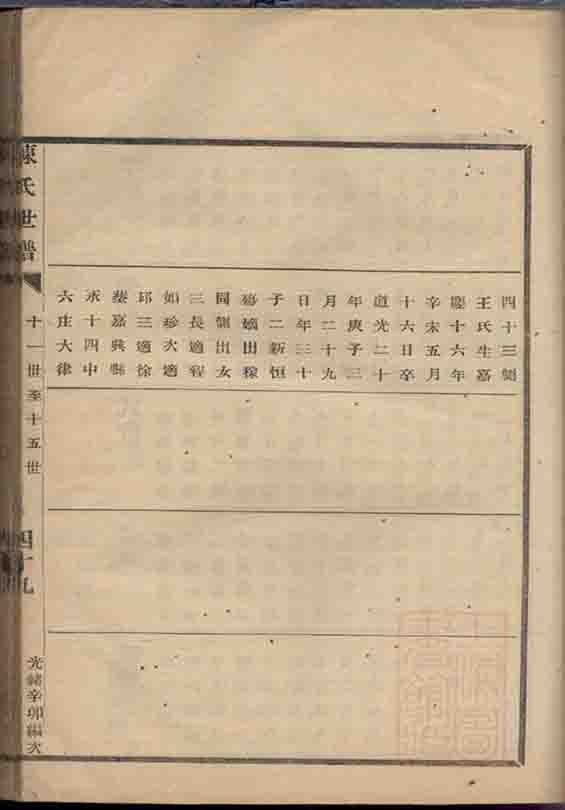 四十三側
王氏生嘉
慶十六年
辛未五月
十六日卒
道光二十
年庚子三
月二十九
日年三十
子二新恒
嫡出稼
同側出女
三長適程
如珍次適
邱三適徐
葬嘉興縣
永十四中
六庄大律
陳氏世譜
十一世至十五世
四十九
光緒辛卯編次